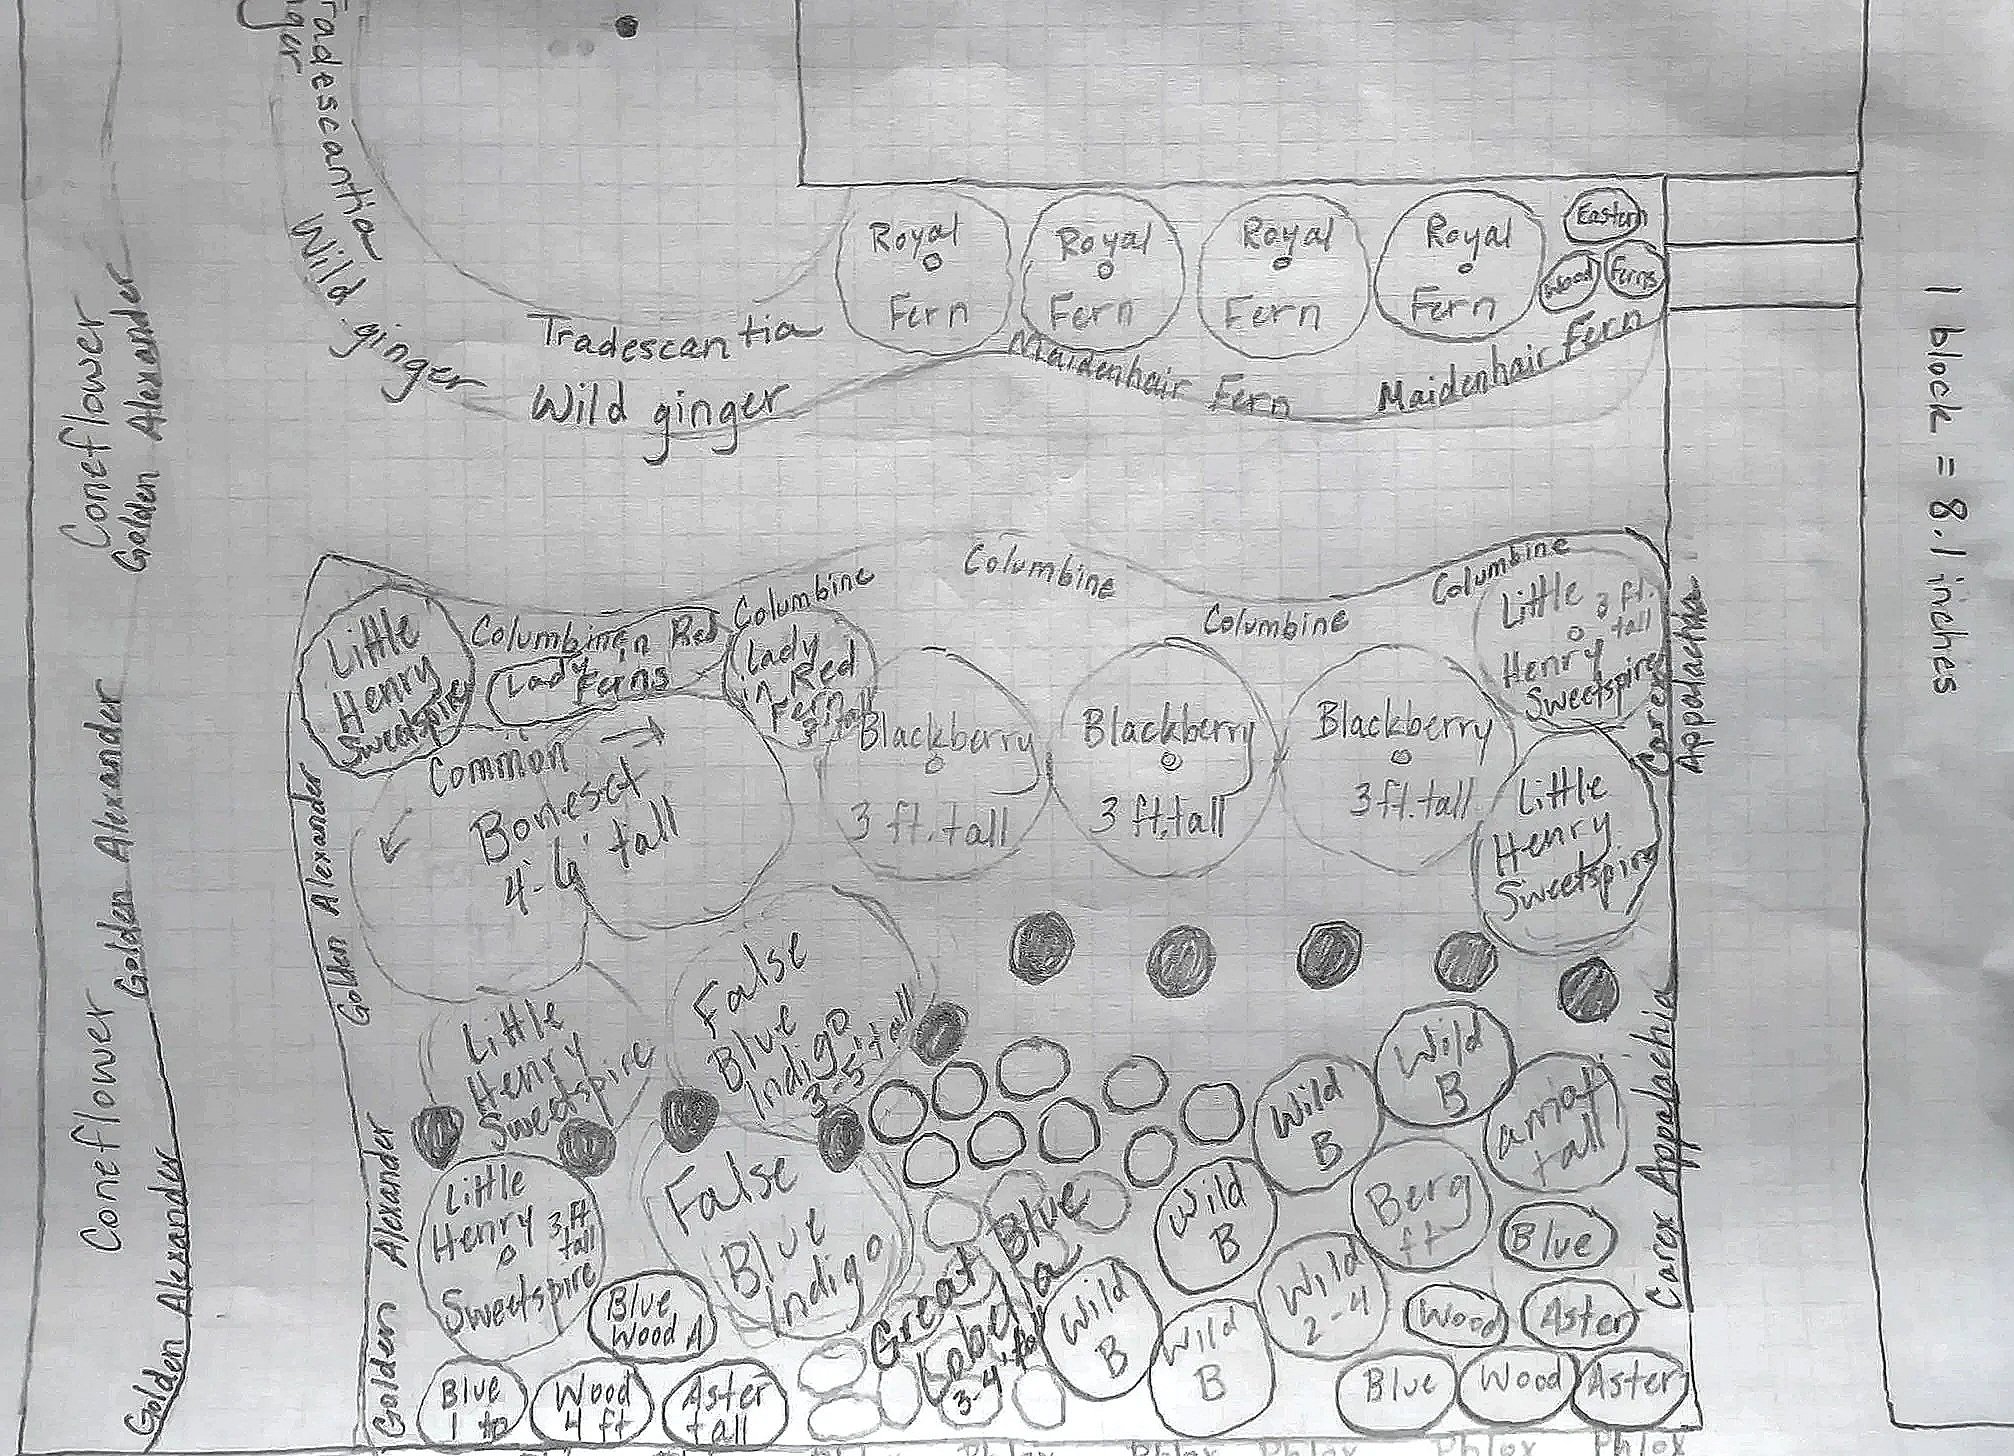 Tradescantia
Wild ginger
Tradescantia
Wild ginger
Royal
Fern
Royal
Fern
Royal
Fern
Royal
Fern
Eastern
Wood
Ferns
Maidenhair Fern
Maidenhair Fern
1 block = 8.1 inches
Coneflower
Golden Alexander
Golden Alexander
Coneflower
Golden Alexander
Columbine
Columbine
Columbine
Columbine
Columbine
Little
Henry
Sweetspire
Lady 'n Red
Ferns
Lady
'n Red
Fern
3' tall
Blackberry
3 ft. tall
Blackberry
3 ft. tall
Blackberry
3 ft. tall
Little 3 ft. tall
Henry
Sweetspire
Carex
Appalachia
Little
Henry
Sweetspire
Common
Boneset
4-6' tall
Golden Alexander
False
Blue
Indigo
3-5' tall
Little
Henry
Sweetspire
Wild
B
Wild
B
Little
Henry 3 ft tall
Sweetspire
False
Blue
Indigo
Great Blue
Lobelia
3-4' tall
Wild
B
Berg
ft
tall
Wild
B
Wild
B
Wild
2-4
Blue
Wood
Aster
Blue
Wood
Aster
Blue
Wood A
Blue
1
Wood
4 ft
Aster
tall
Golden Alexander
Carex Appalachia
Phlox
Phlox
Phlox
Phlox
Phlox